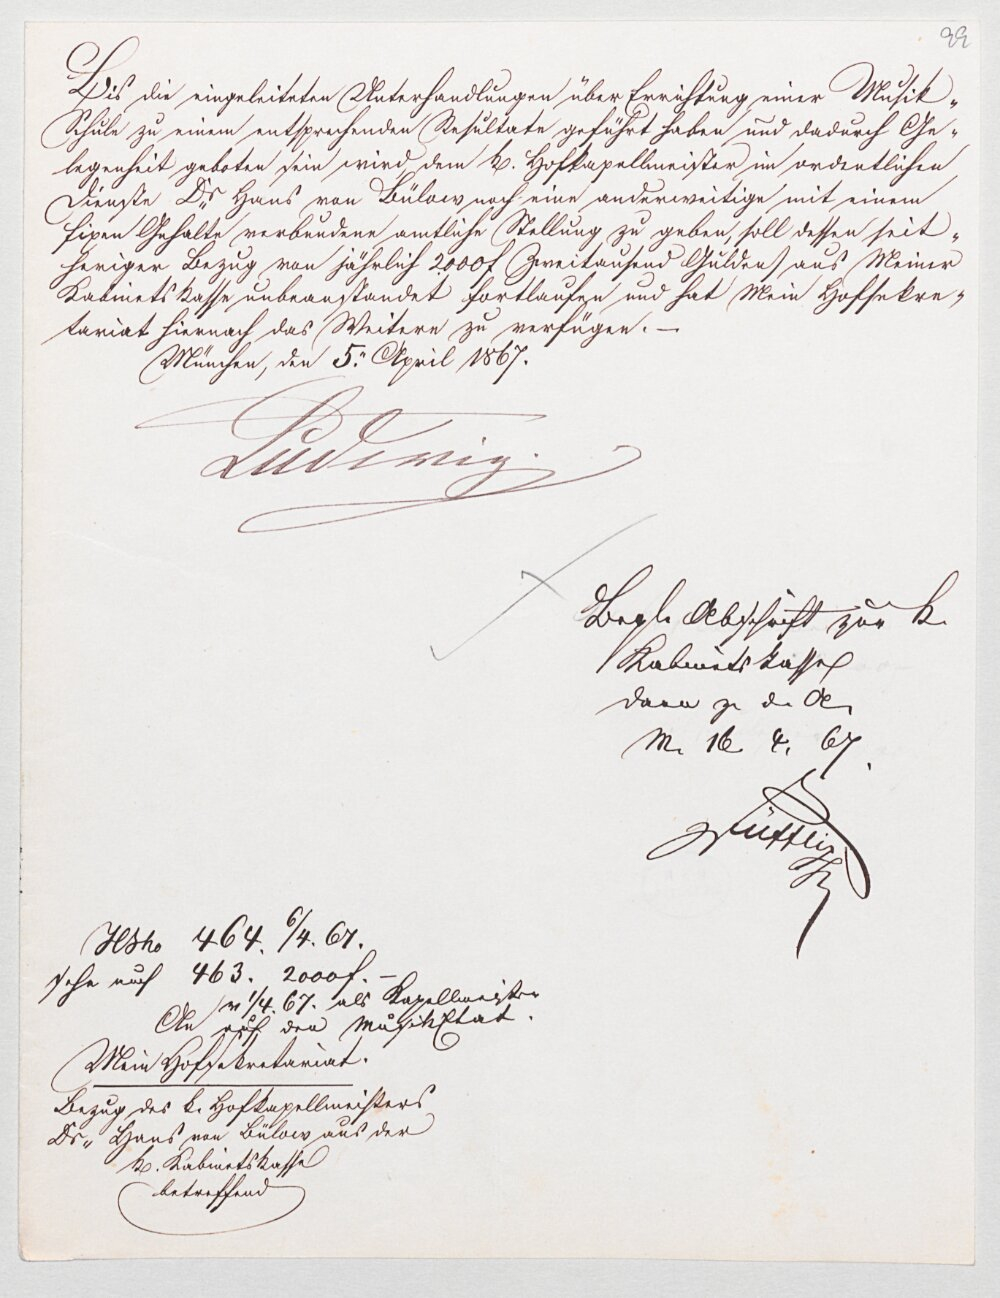 99
Bis die eingeleiteten Unterhandlungen über Errichtung einer Musik-
Schule zu einem entsprechenden Resultate geführt haben und dadurch Ge-
legenheit geboten sein wird, dem k. Hofkapellmeister im ordentlichen
Dienste Dr. Hans von Bülow noch eine anderweitige mit einem
fixen Gehalte verbundene amtliche Stellung zu geben, soll dessen seit-
heriger Bezug von jährlich 2000f (Zweitausend Gulden) aus Meiner
Kabinetskasse unbeanstandet fortlaufen und hat Mein Hofsekre-
tariat hiernach das Weitere zu verfügen. —
München, den 5. April 1867.
Ludwig.
Abschrift zur k.
Kabinetskasse
dann z. d. A.
M. 16 4. 67.
464. 6/4. 67.
463. 2000f. —
v 1/4. 67. als Kapellmeister
An auf den Musik Etat.
Mein Hofsekretariat.
Bezug des k. Hofkapellmeisters
Dr. Hans von Bülow aus der
k. Kabinetskasse
betreffend